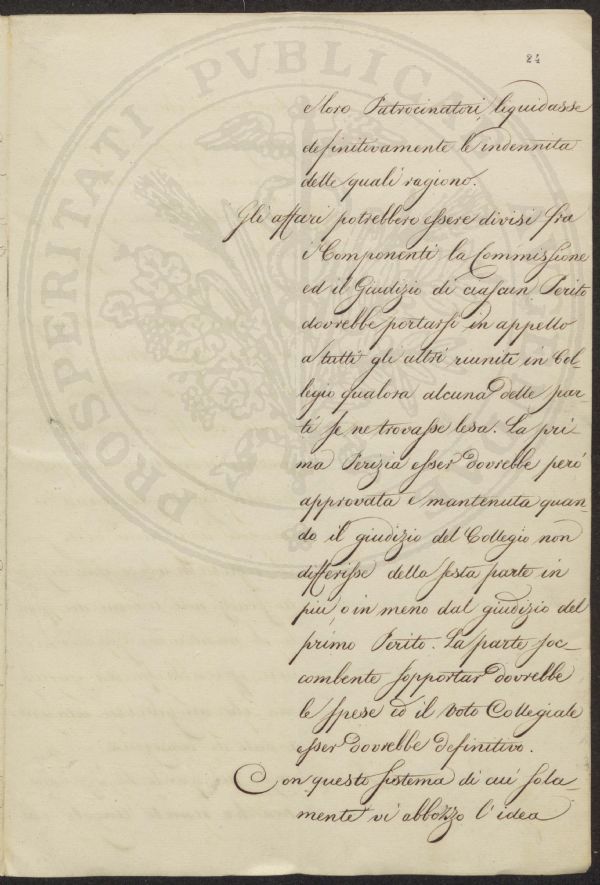 84
e loro Patrocinatori, liquidasse
definitivamente le indennita
delle quali ragiono.
Gli affari potrebbero essere divisi fra
i Componenti la Commissione
ed il Giudizio di ciascun Perito
dovrebbe portarsi in appello
a tutti gli altri riuniti in Col-
legio qualora alcuna delle par-
ti se ne trovasse lesa. La pri-
ma Perizia esser dovrebbe però
approvata e mantenuta quan-
do il giudizio del Collegio non
differisse della sesta parte in
più, o in meno dal giudizio del
primo Perito. La parte soc-
combente sopportar dovrebbe
le spese ed il Voto Collegiale
esser dovrebbe definitivo.
Con questo sistema di cui sola-
mente vi abbozzo l'idea
PROSPERITATI PVBLICAE